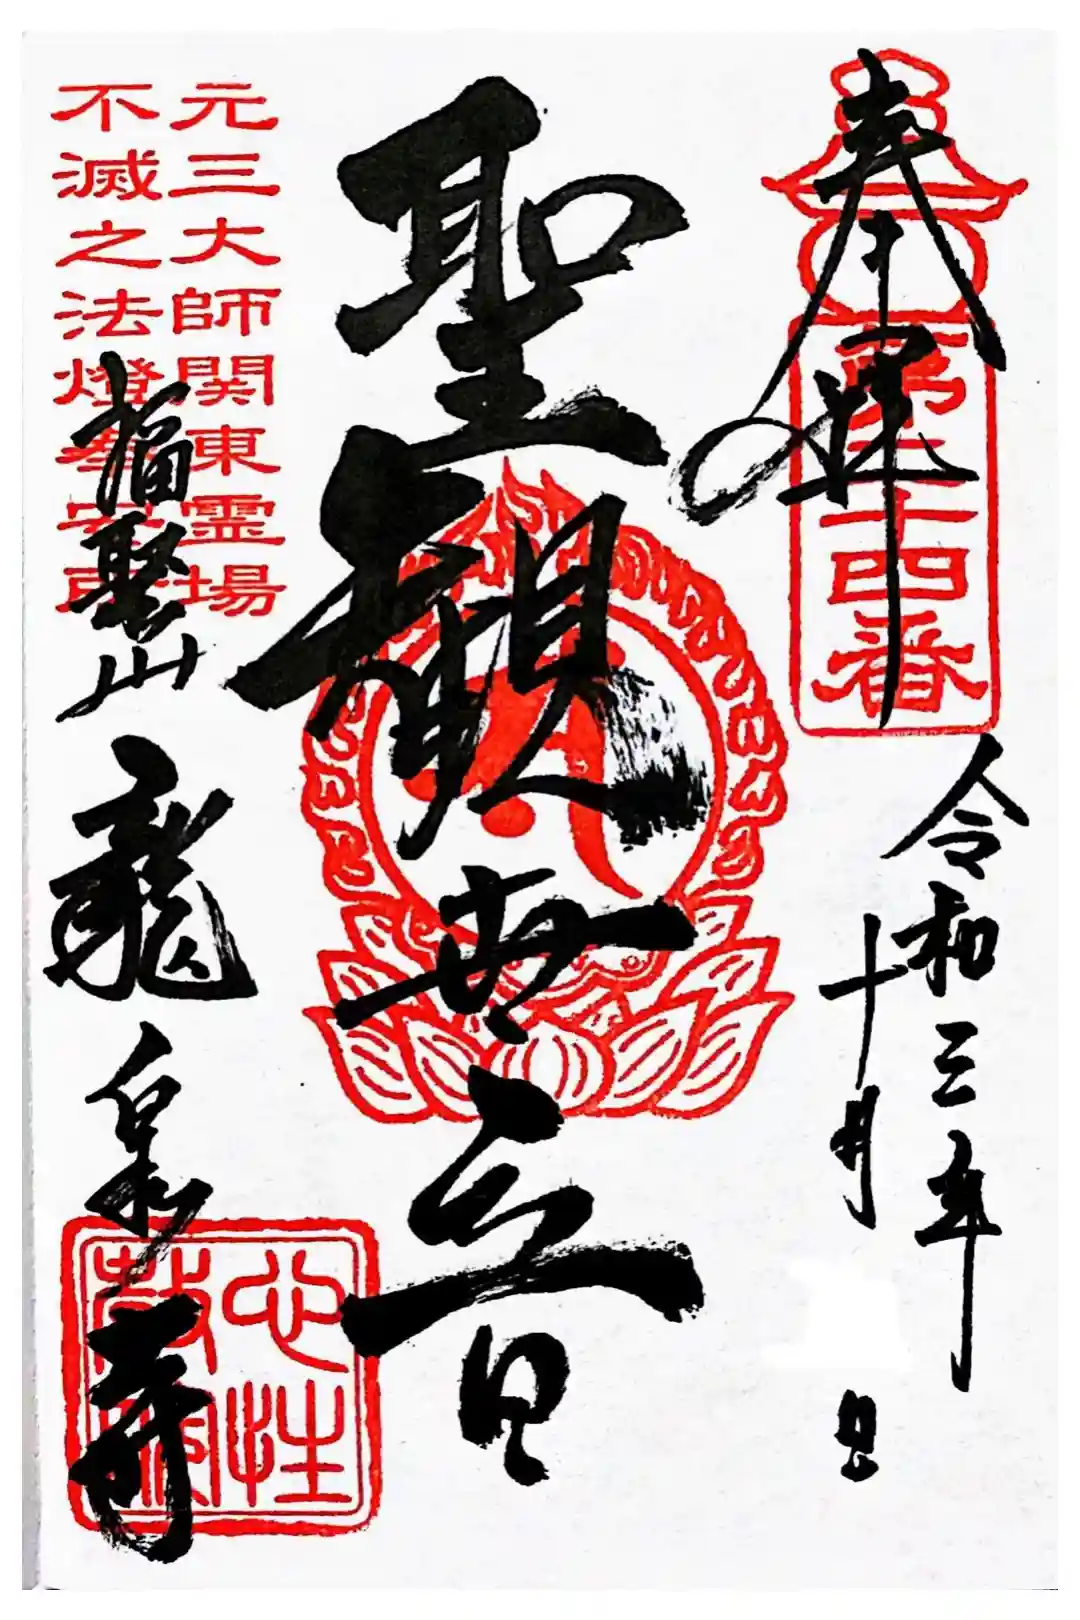 奉拝
十四番
令和三年
十月
日
聖観世音
元三大師関東霊場
不滅之法燈
福聚山
龍泉寺
心性